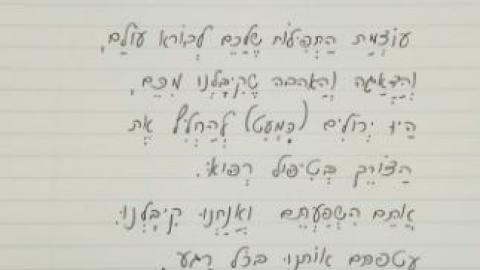 עוֹצְמַת הַתְּפִילּוֹת שֶׁלָּכֶם לְבוֹרֵא עוֹלָם,
וְהַדְּאָגָה וְהָאַהֲבָה שֶׁקִּיבַּלְנוּ מִכֶּם,
הָיוּ יְכוֹלִים (כִּמְעַט) לְהַחֲלִיף אֶת
הַצּוֹרֶךְ בְּטִיפּוּל רְפוּאִי.
אַתֶּם הִשְׁפַּעְתֶּם וַאֲנַחְנוּ קִיבַּלְנוּ.
עטפתם אוֹתָנוּ בּכׇל רֶגַע,